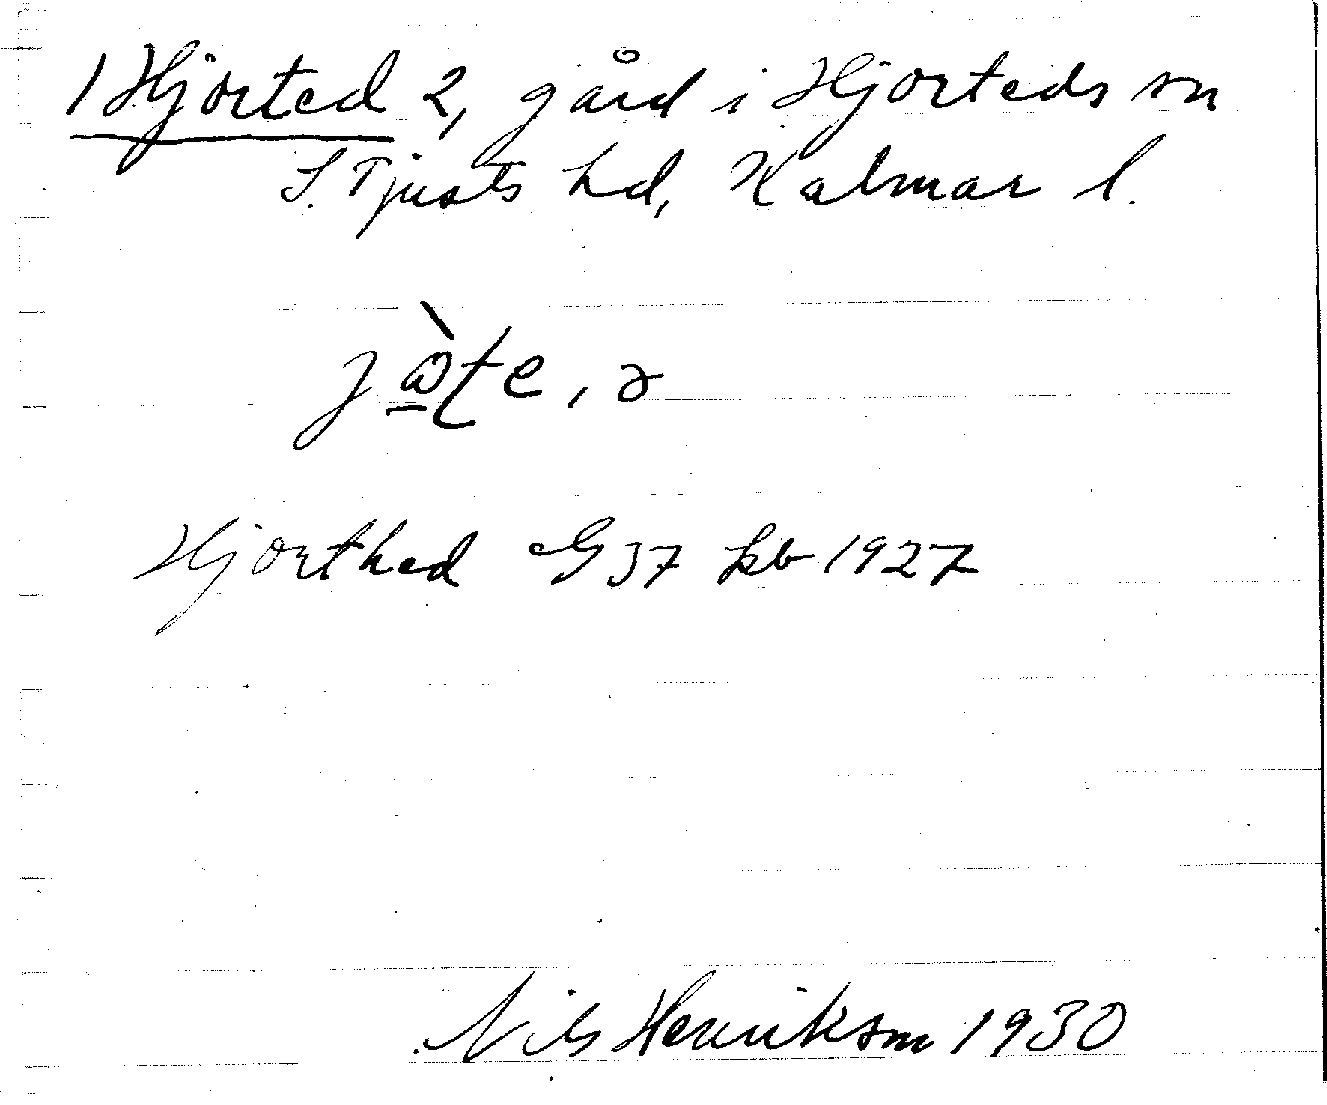 1 Hjorted 2, gård i Hjorteds sn
S. Tjusts hd, Kalmar l.
jὰte, ə
Hjorthed G 37 kb 1927
Nils Henriksm 1930